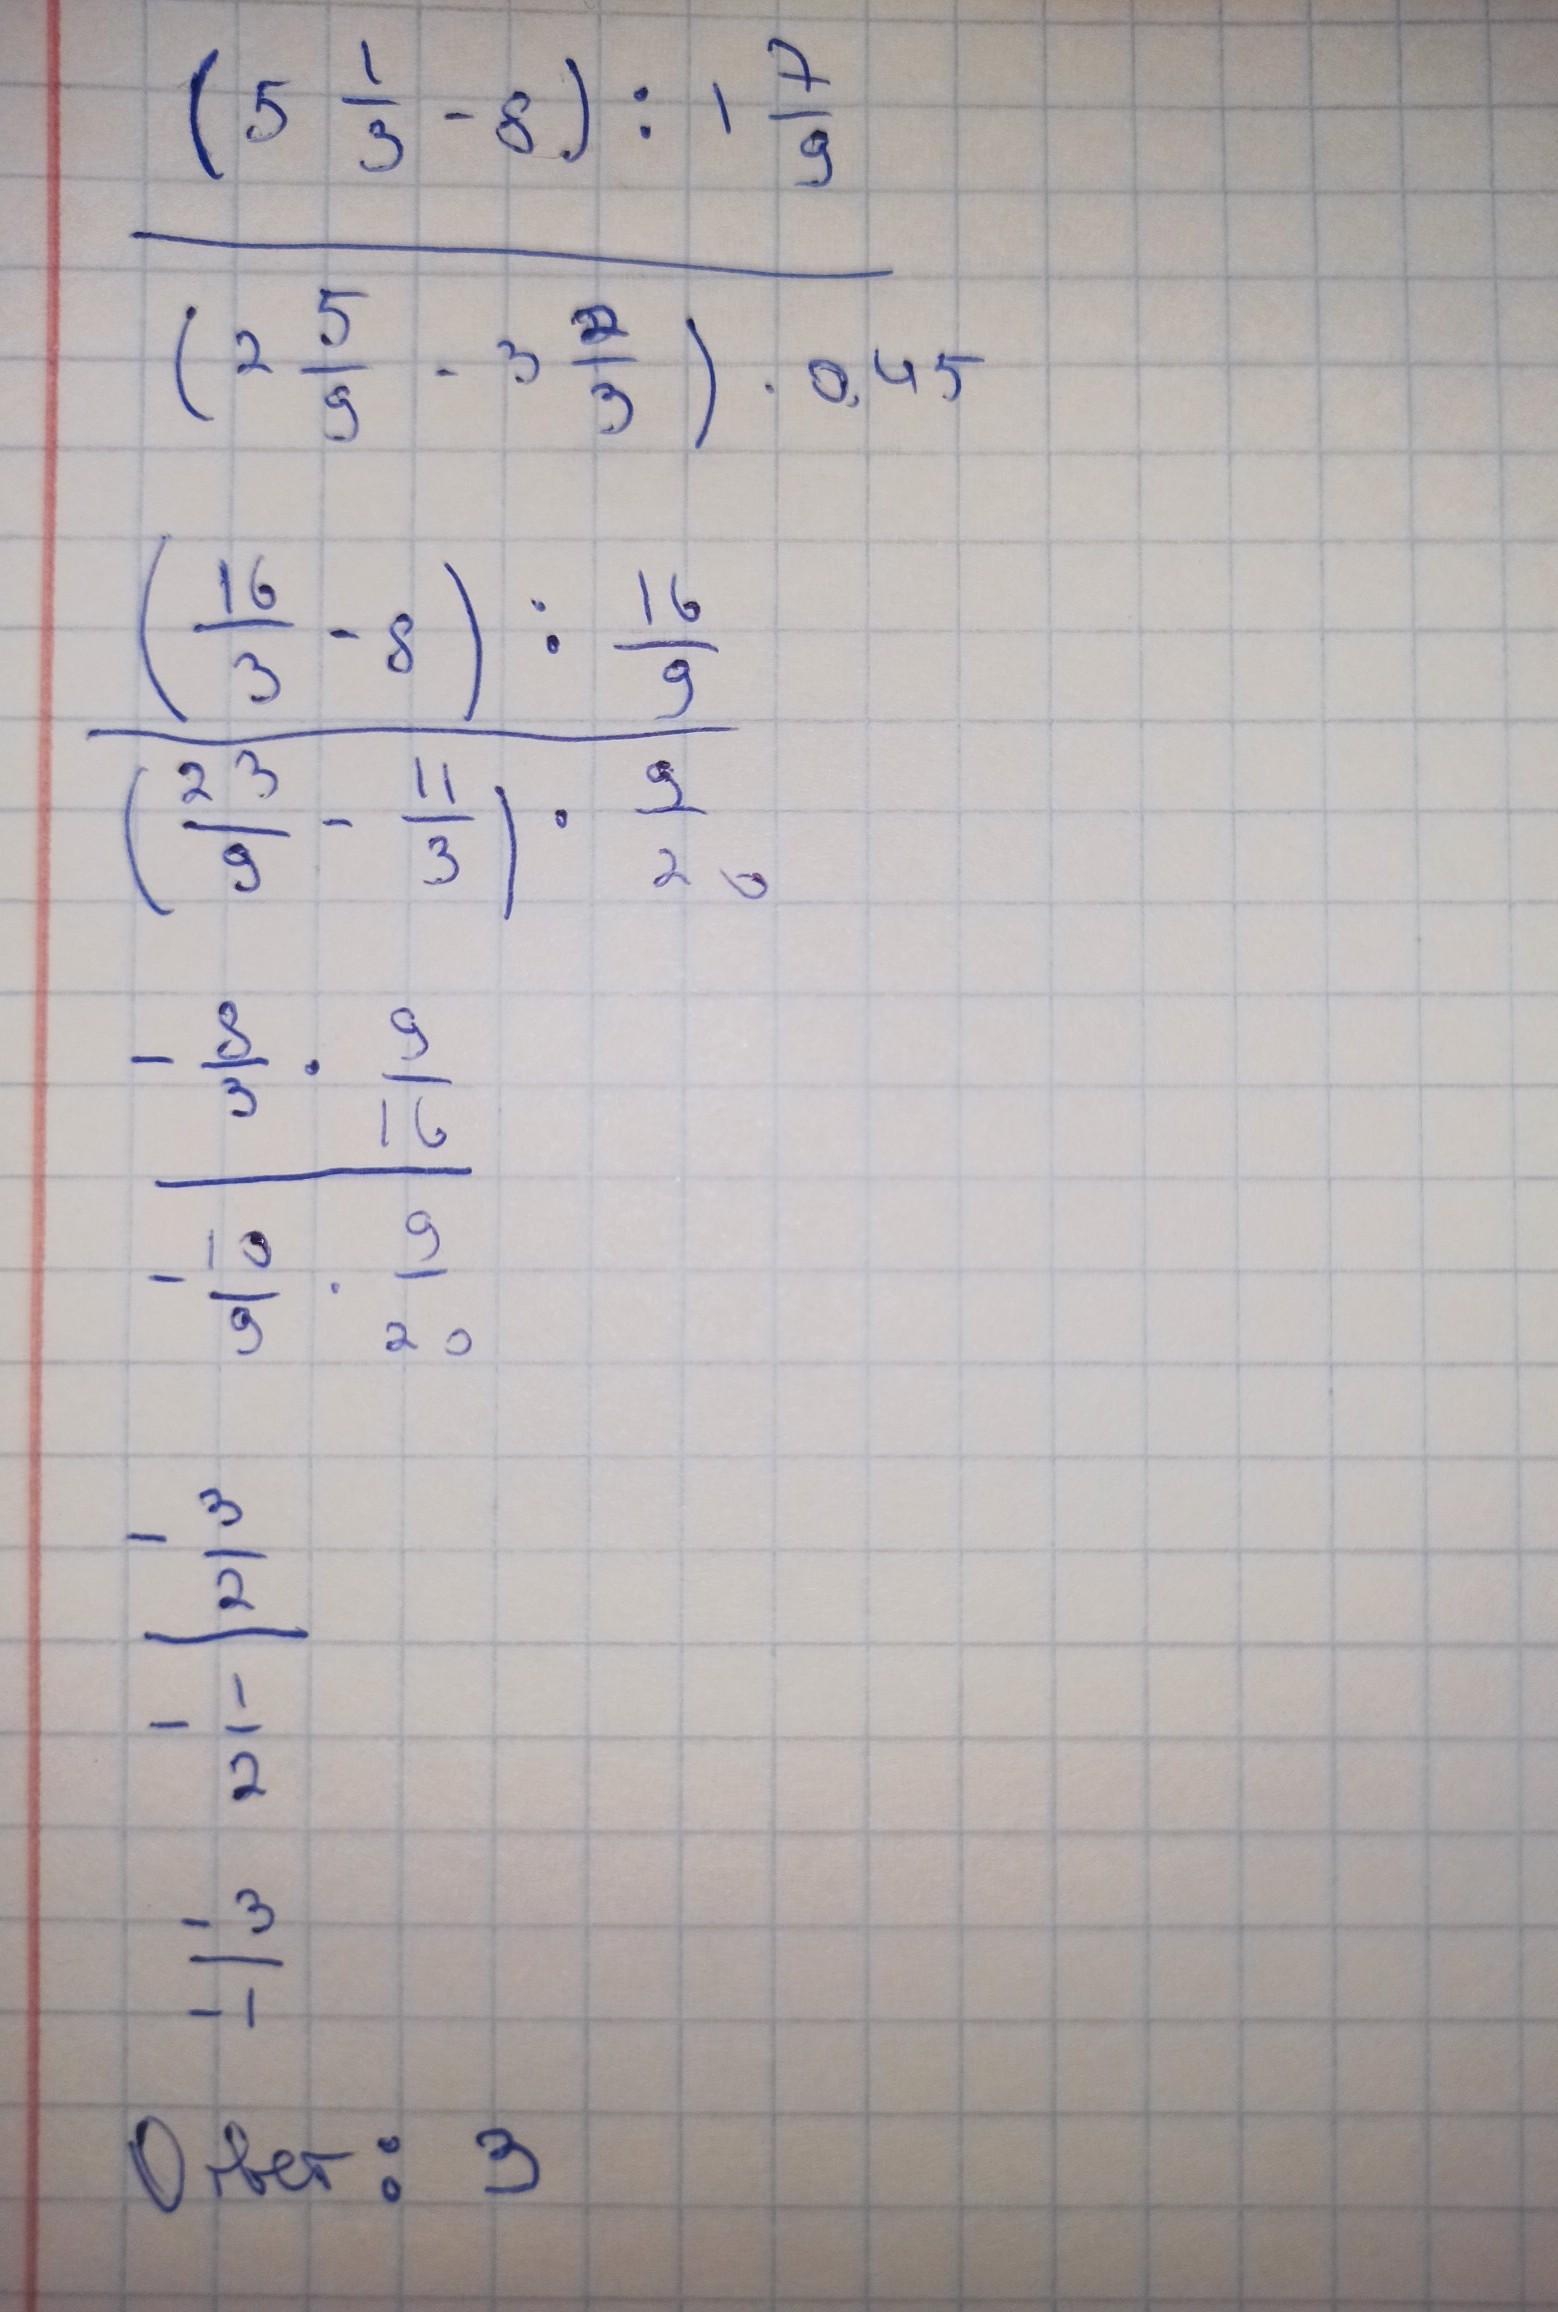 (5 1/3 - 8) : 1 7/9
(2 5/9 - 3 2/3) · 0,45
(16/3 - 8) : 16/9
(23/9 - 11/3) · 9/20
- 8/3 · 9/16
- 10/9 · 9/20
- 3/2
- 1/2
-3
-1
Ответ: 3